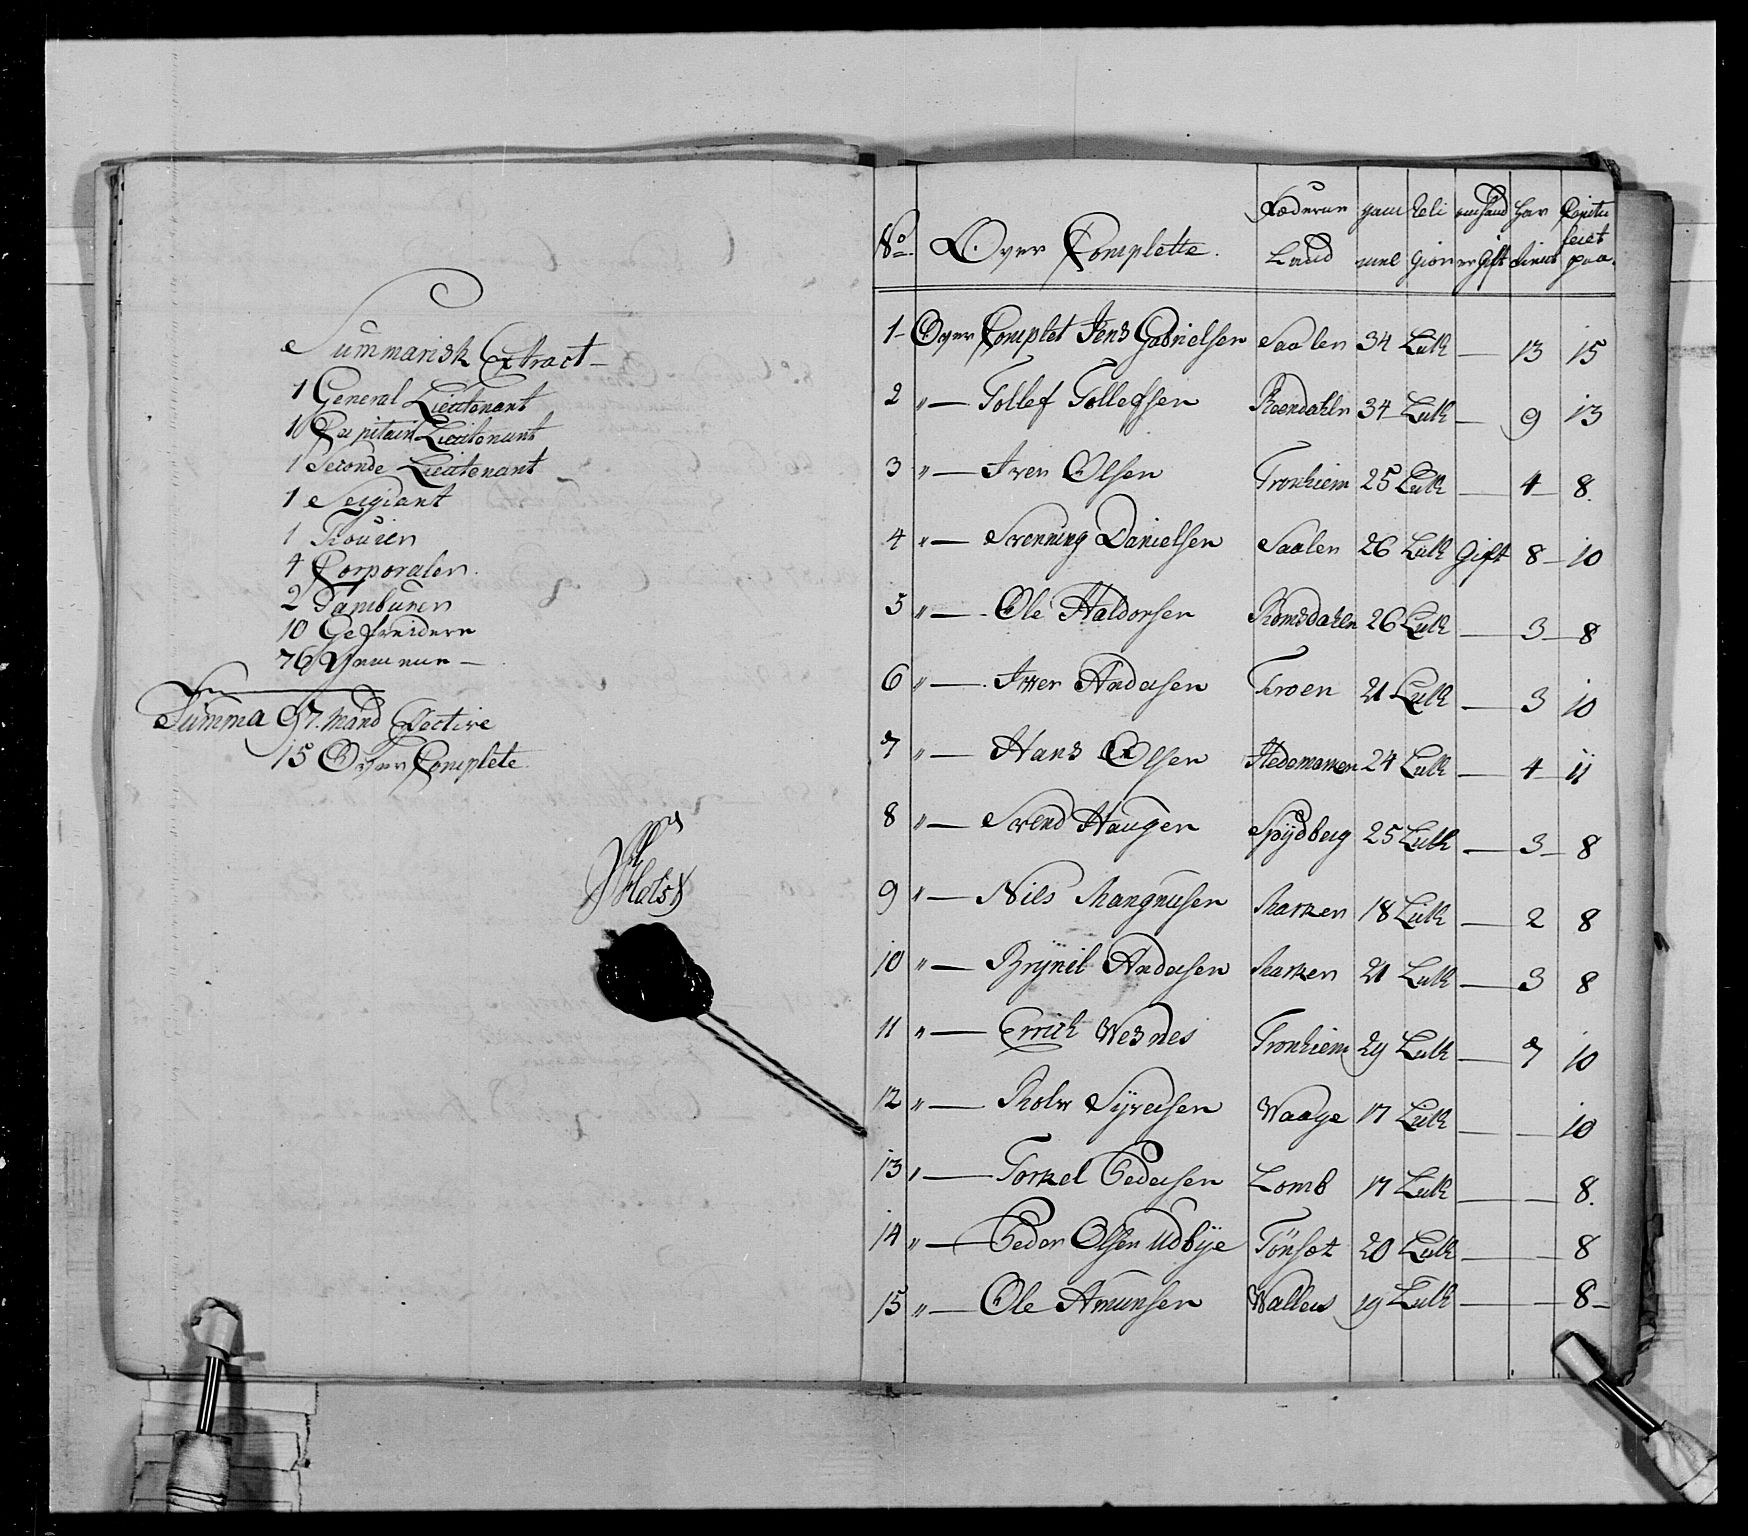 Summarisk Extract
1 General Lieutenant
1 Capitain Lieutenant
1 Seconde Lieutenant
1 Sergiant
1 Fourier
4 Corporaler
2 Tambuurer
10 Gefreidere
76 Gemeene
Summa 97. Mand Efective
15 Over Complete
No. Over Complette. Fæderne Land gam mel Reli gion om hand er Gift har tient Capitu leret paa.
1 Over Complet Jens Gabrielsen Saalen 34 Luth — 13 15
2 " — Tollef Tollefsen Roendahln 34 Luth — 9 13
3 " — Iver Olsen Tronhiem 25 Luth — 4 8.
4 " — Svenning Danielsen Saalen 26 Luth Gift 8 10
5 " — Ole Haldorsen Romsdahln 26 Luth — 3 8
6 " — Iver Andersen Kroen 21 Luth — 3 10
7 " — Hans Olsen Hedemarken 24 Luth — 4 11
8 " — Svend Haugen Spydberg 25 Luth — 3 8
9 " — Nils Mangnusen Marker 18 Luth — 2 8
10 " — Brynil Andersen Marker 21 Luth — 3 8
11 " — Errich Wesnes Tronhiem 29 Luth — 7 10
12 " — Rolv Syversen Waage 17 Luth — — 10
13 " — Torkel Pedersen Lomb 17 Luth — — 8.
14 " — Peder Olsen Udbye Tønset 20 Luth — — 8
15 " — Ole Amunsen Walders 19 Luth — — 8